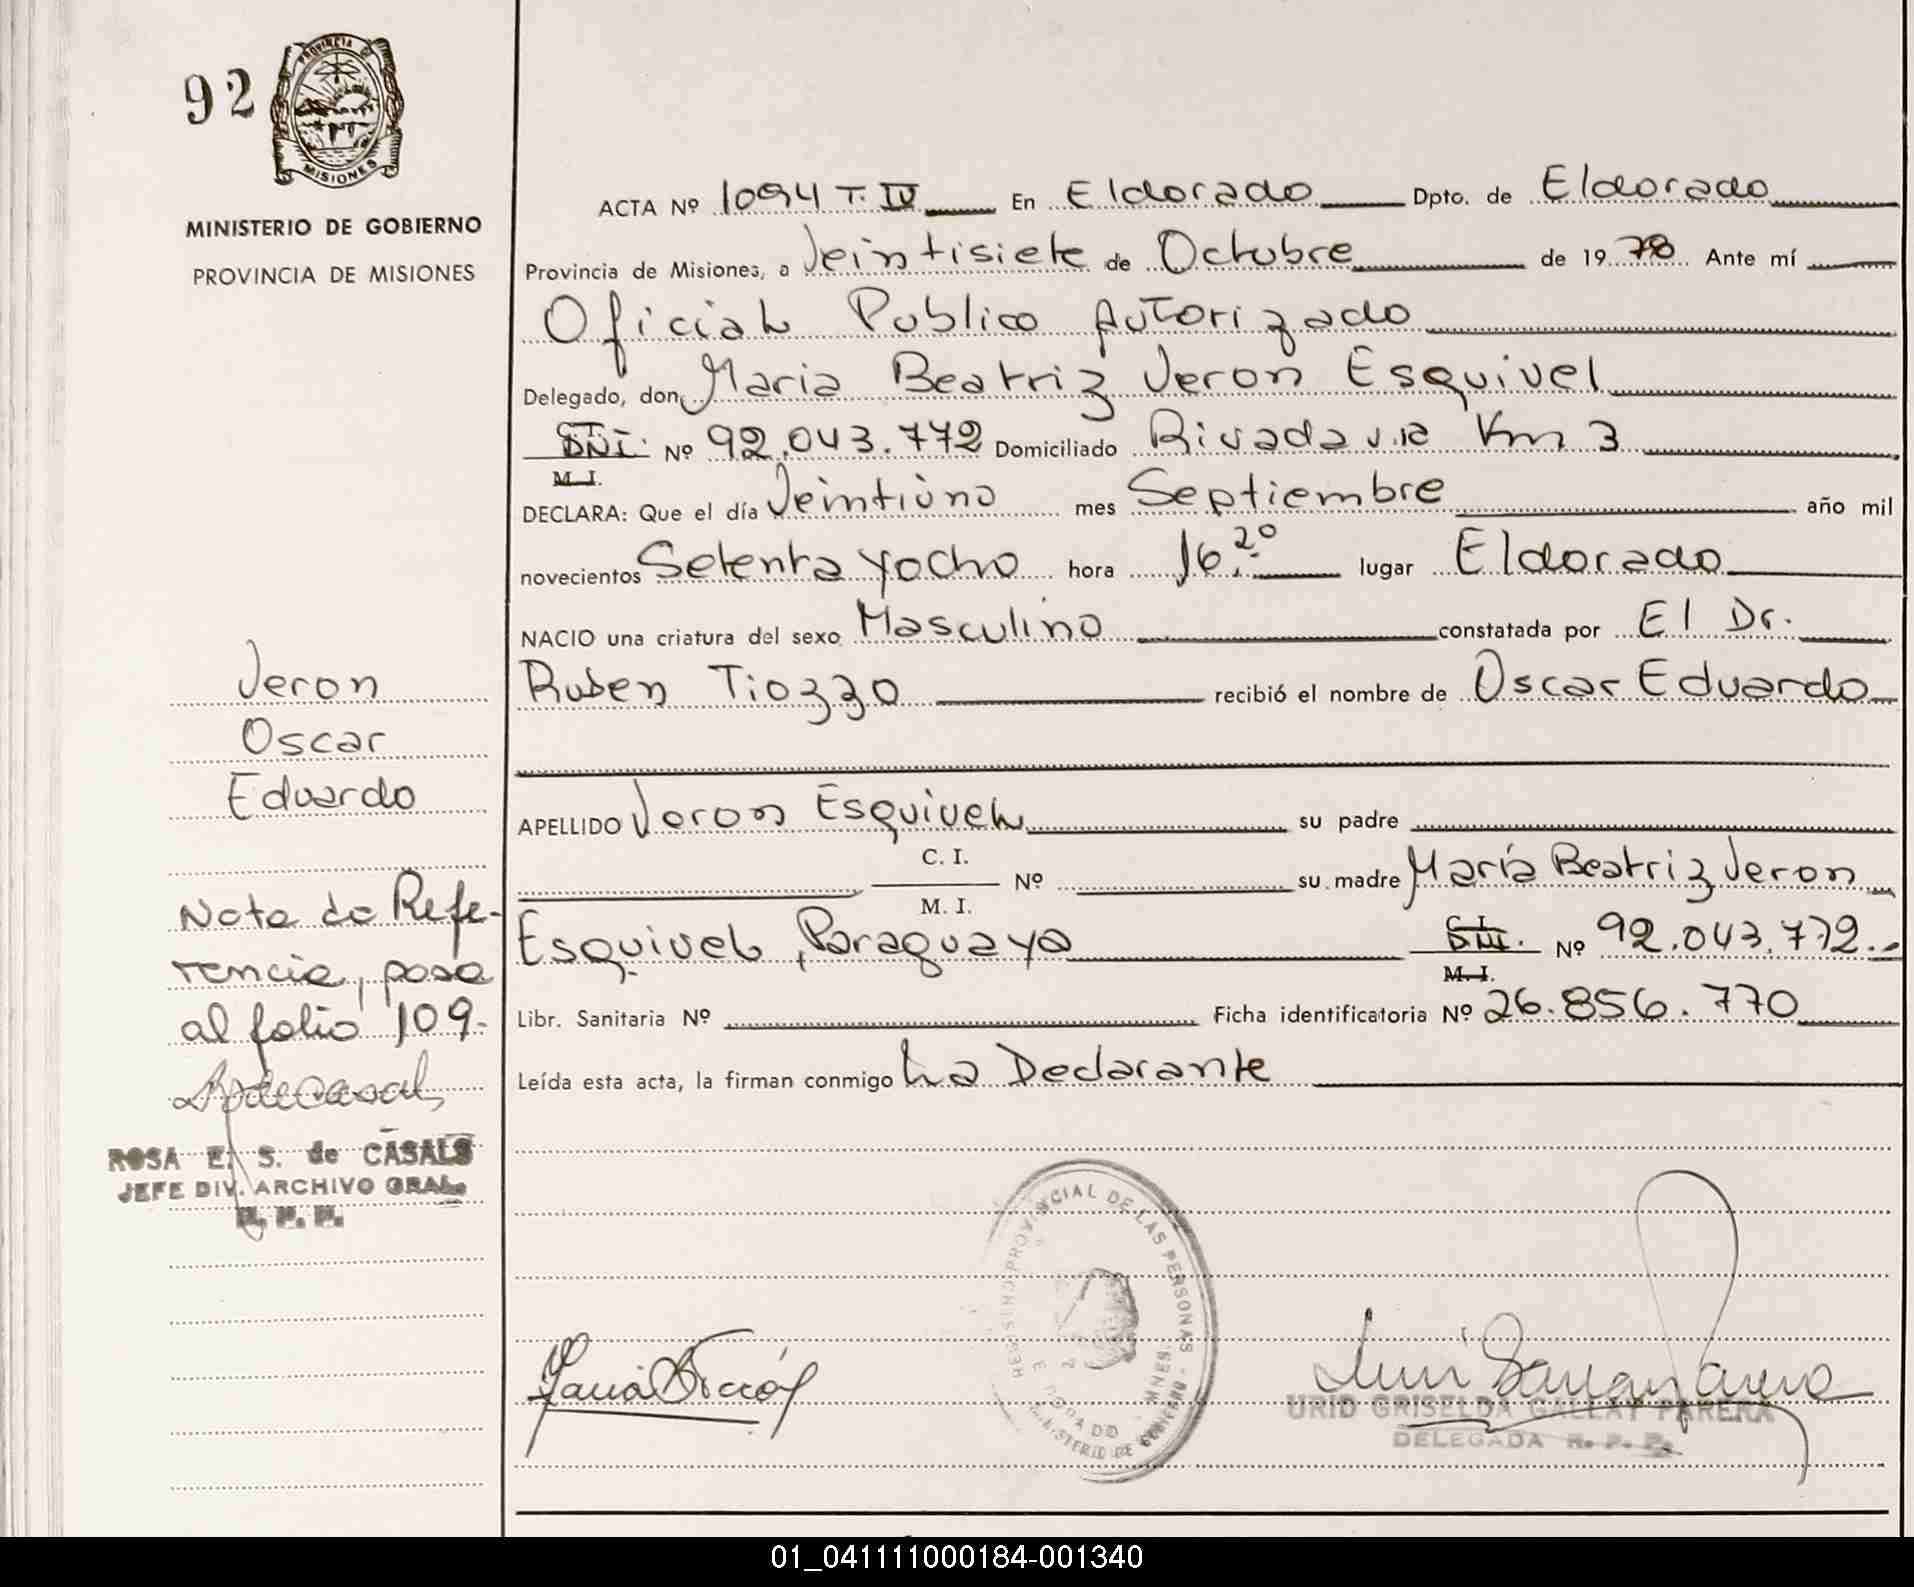 92
PROVINCIA DE
MISIONES
MINISTERIO DE GOBIERNO
PROVINCIA DE MISIONES
Veron
Oscar
Eduardo
Nota de Refe-
rencia, pasa
al folio 109-
ROSA E. S. de CASALS
JEFE DIV. ARCHIVO GRAL.
R. P. P.
ACTA Nº 1094 T. IV En Eldorado Dpto. de Eldorado
Provincia de Misiones, a Veintisiete de Octubre de 1978 Ante mí
Oficial Publico Autorizado
Delegado, don Maria Beatriz Veron Esquivel
C. I. DNI. Nº 92.043.772 Domiciliado Rivadavia Km 3
M. I.
DECLARA: Que el día Veintiuno mes Septiembre año mil
novecientos Setenta y ocho hora 16.20 lugar Eldorado
NACIO una criatura del sexo Masculino constatada por El Dr.
Ruben Tiozzo recibió el nombre de Oscar Eduardo
APELLIDO Veron Esquivel su padre
C. I.
Nº su madre María Beatriz Veron
M. I.
Esquivel, Paraguaya C. I. DNI. Nº 92.043.772.-
M. I.
Libr. Sanitaria Nº Ficha identificatoria Nº 26.856.770
Leída esta acta, la firman conmigo La Declarante
PROVINCIAL DE LAS PERSONAS
MINISTERIO DE GOBIERNO
URID GRISELDA GALLAY PARERA
DELEGADA R. P. P.
01_041111000184-001340